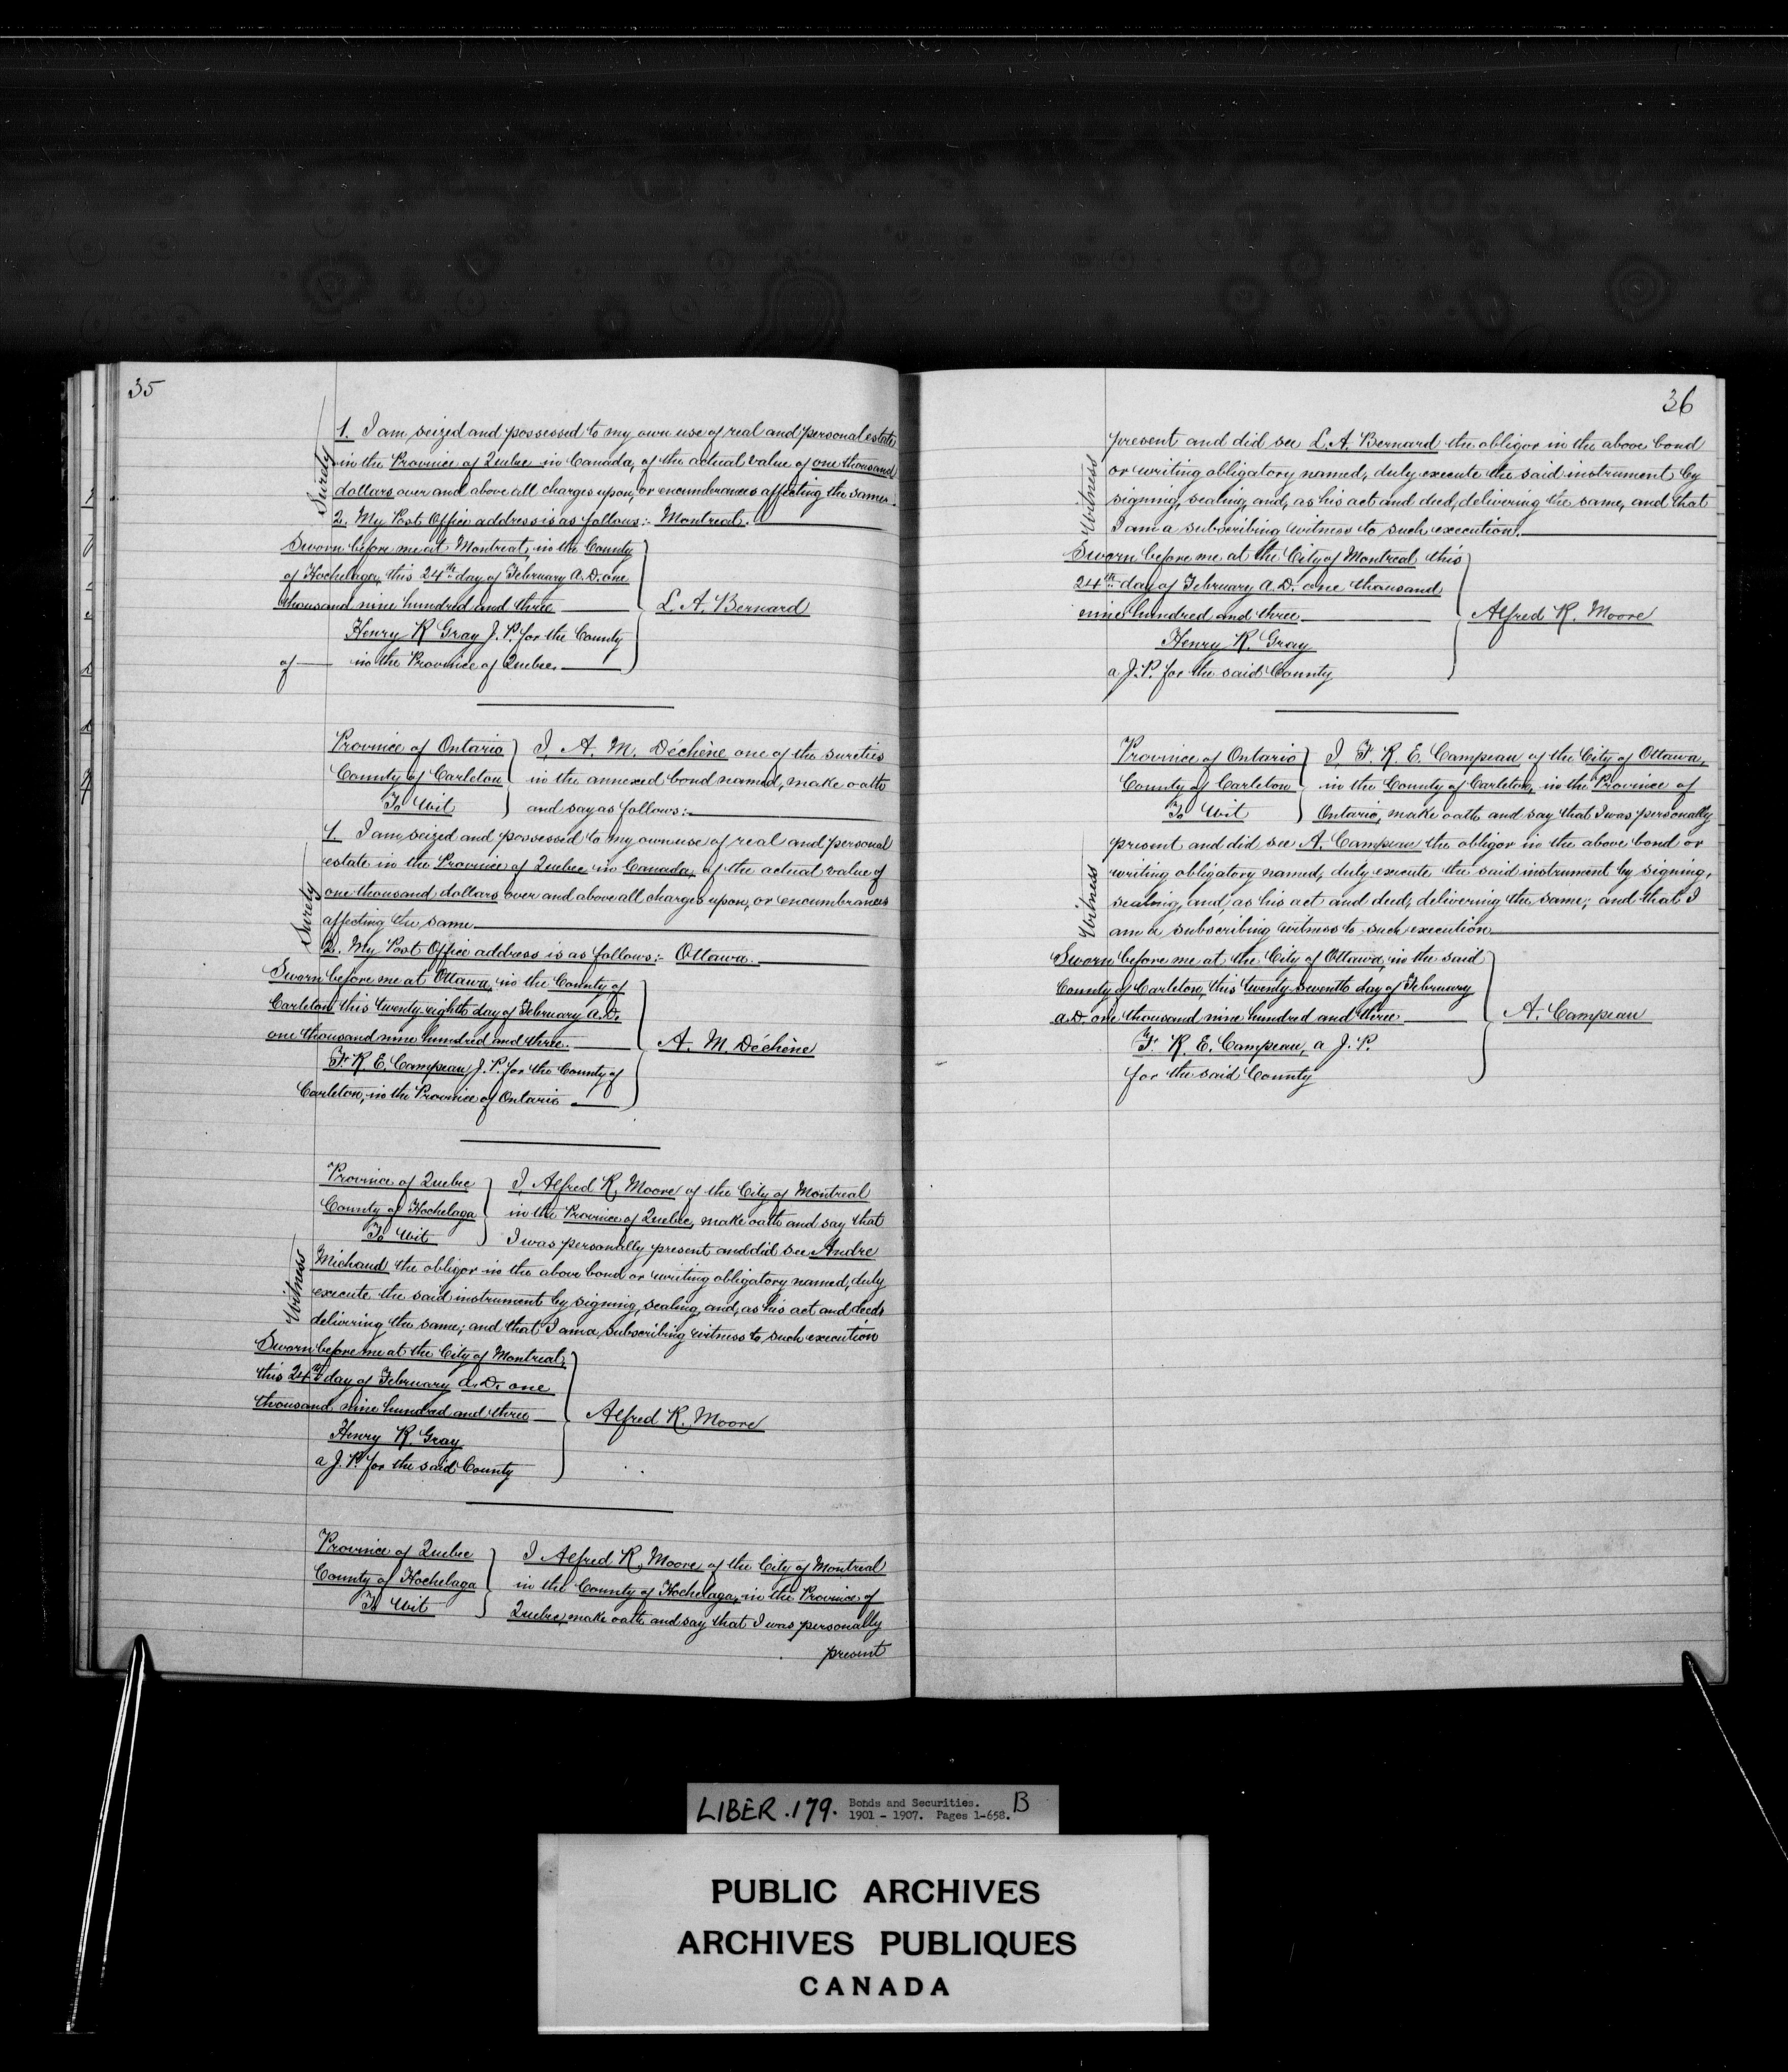 35
Surety
1. I am seized and possessed to my own use of real and personal estate
in the Province of Quebec in Canada, of the actual value of one thousand
dollars over and above all charges upon, or encumbrances affecting the same.
2. My Post Office address is as follows:- Montreal.
Sworn before me at Montreal, in the County
of Hochelaga, this 24th day of February A.D. one
thousand nine hundred and three
L. A. Bernard
Henry R Gray J. P. for the County
of — in the Province of Quebec.
Province of Ontario
County of Carleton
To Wit
I, A. M. Déchène one of the sureties
in the annexed bond named, make oath
and say as follows:-
Surety
1. I am seized and possessed to my own use of real and personal
estate in the Province of Quebec in Canada, of the actual value of
one thousand dollars over and above all charges upon, or encumbrances
affecting the same
2. My Post Office address is as follows:- Ottawa.
Sworn before me at Ottawa, in the County of
Carleton this twenty-eighth day of February A.D.
one thousand nine hundred and three.
A. M. Déchène
F. R. E. Campeau, J. P. for the County of
Carleton, in the Province of Ontario
Province of Quebec
County of Hochelaga
To Wit
I, Alfred R. Moore of the City of Montreal
in the Province of Quebec, make oath and say that
I was personally present and did see Andre
Witness
Michaud the obligor in the above bond or writing obligatory named, duly
execute the said instrument by signing, sealing, and, as his act and deed,
delivering the same; and that I am a subscribing witness to such execution
Sworn before me at the City of Montreal,
this 24th day of February A.D. one
thousand nine hundred and three
Alfred R. Moore
Henry R. Gray
a J. P. for the said County
Province of Quebec
County of Hochelaga
To Wit
I Alfred R. Moore of the City of Montreal
in the County of Hochelaga, in the Province of
Quebec, make oath and say that I was personally
present
36
Witness
present and did see L. A. Bernard the obligor in the above bond
or writing obligatory named, duly execute the said instrument by
signing, sealing, and, as his act and deed, delivering the same, and that
I am a subscribing witness to such execution.
Sworn before me at the City of Montreal this
24th day of February A.D. one thousand
nine hundred and three
Alfred R. Moore
Henry R. Gray
a J. P. for the said County
Province of Ontario
County of Carleton
To Wit
I, F. R. E. Campeau of the City of Ottawa,
in the County of Carleton, in the Province of
Ontario, make oath and say that I was personally
Witness
present and did see A. Campeau the obligor in the above bond or
writing obligatory named, duly execute the said instrument by signing,
sealing, and, as his act and deed, delivering the same; and that I
am a subscribing witness to such execution
Sworn before me at the City of Ottawa, in the said
County of Carleton, this twenty-seventh day of February
A.D. one thousand nine hundred and three
A. Campeau
F. R. E. Campeau, a J. P.
for the said County
LIBER .179. Bonds and Securities. B
1901 - 1907. Pages 1-658.
PUBLIC ARCHIVES
ARCHIVES PUBLIQUES
CANADA